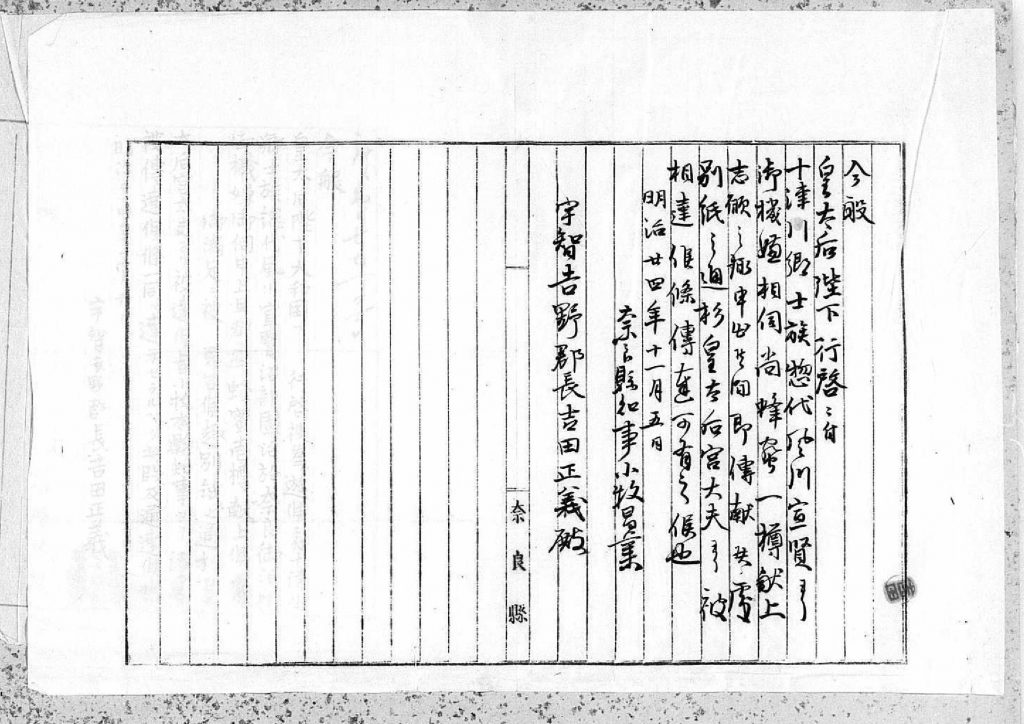 今般
皇太后陛下行啓ニ付
十津川郷士族惣代 川宣賢ヨリ
御機嫌相伺尚蜂蜜一樽献上
志願之 申出候間即傳献共 
別紙之通杉皇太后宮大夫ヨリ被
相達候條傳達可有之候也
明治廿四年十一月五日
奈良縣知事小牧昌業
宇智吉野郡長吉田正義殿
奈良縣